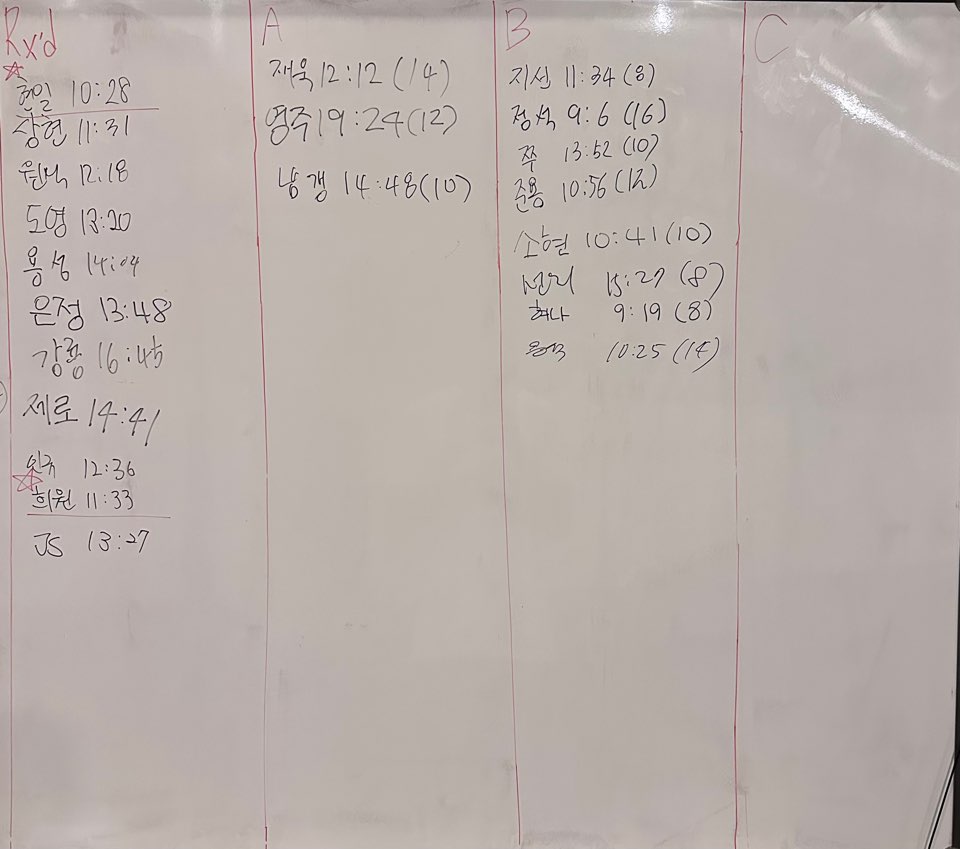 Rx'd
현일 10:28
상현 11:31
원석 12:18
도영 13:20
용성 14:04
은정 13:48
강룡 16:45
제로 14:41
12:36
희원 11:33
JS 13:27
A
재욱 12:12 (14)
영주 19:24 (12)
낭갱 14:48 (10)
B
지선 11:34 (8)
정석 9:6 (16)
쭈 13:52 (10)
준용 10:56 (12)
소현 10:41 (10)
15:27 (8)
혀나 9:19 (8)
10:25 (14)
C